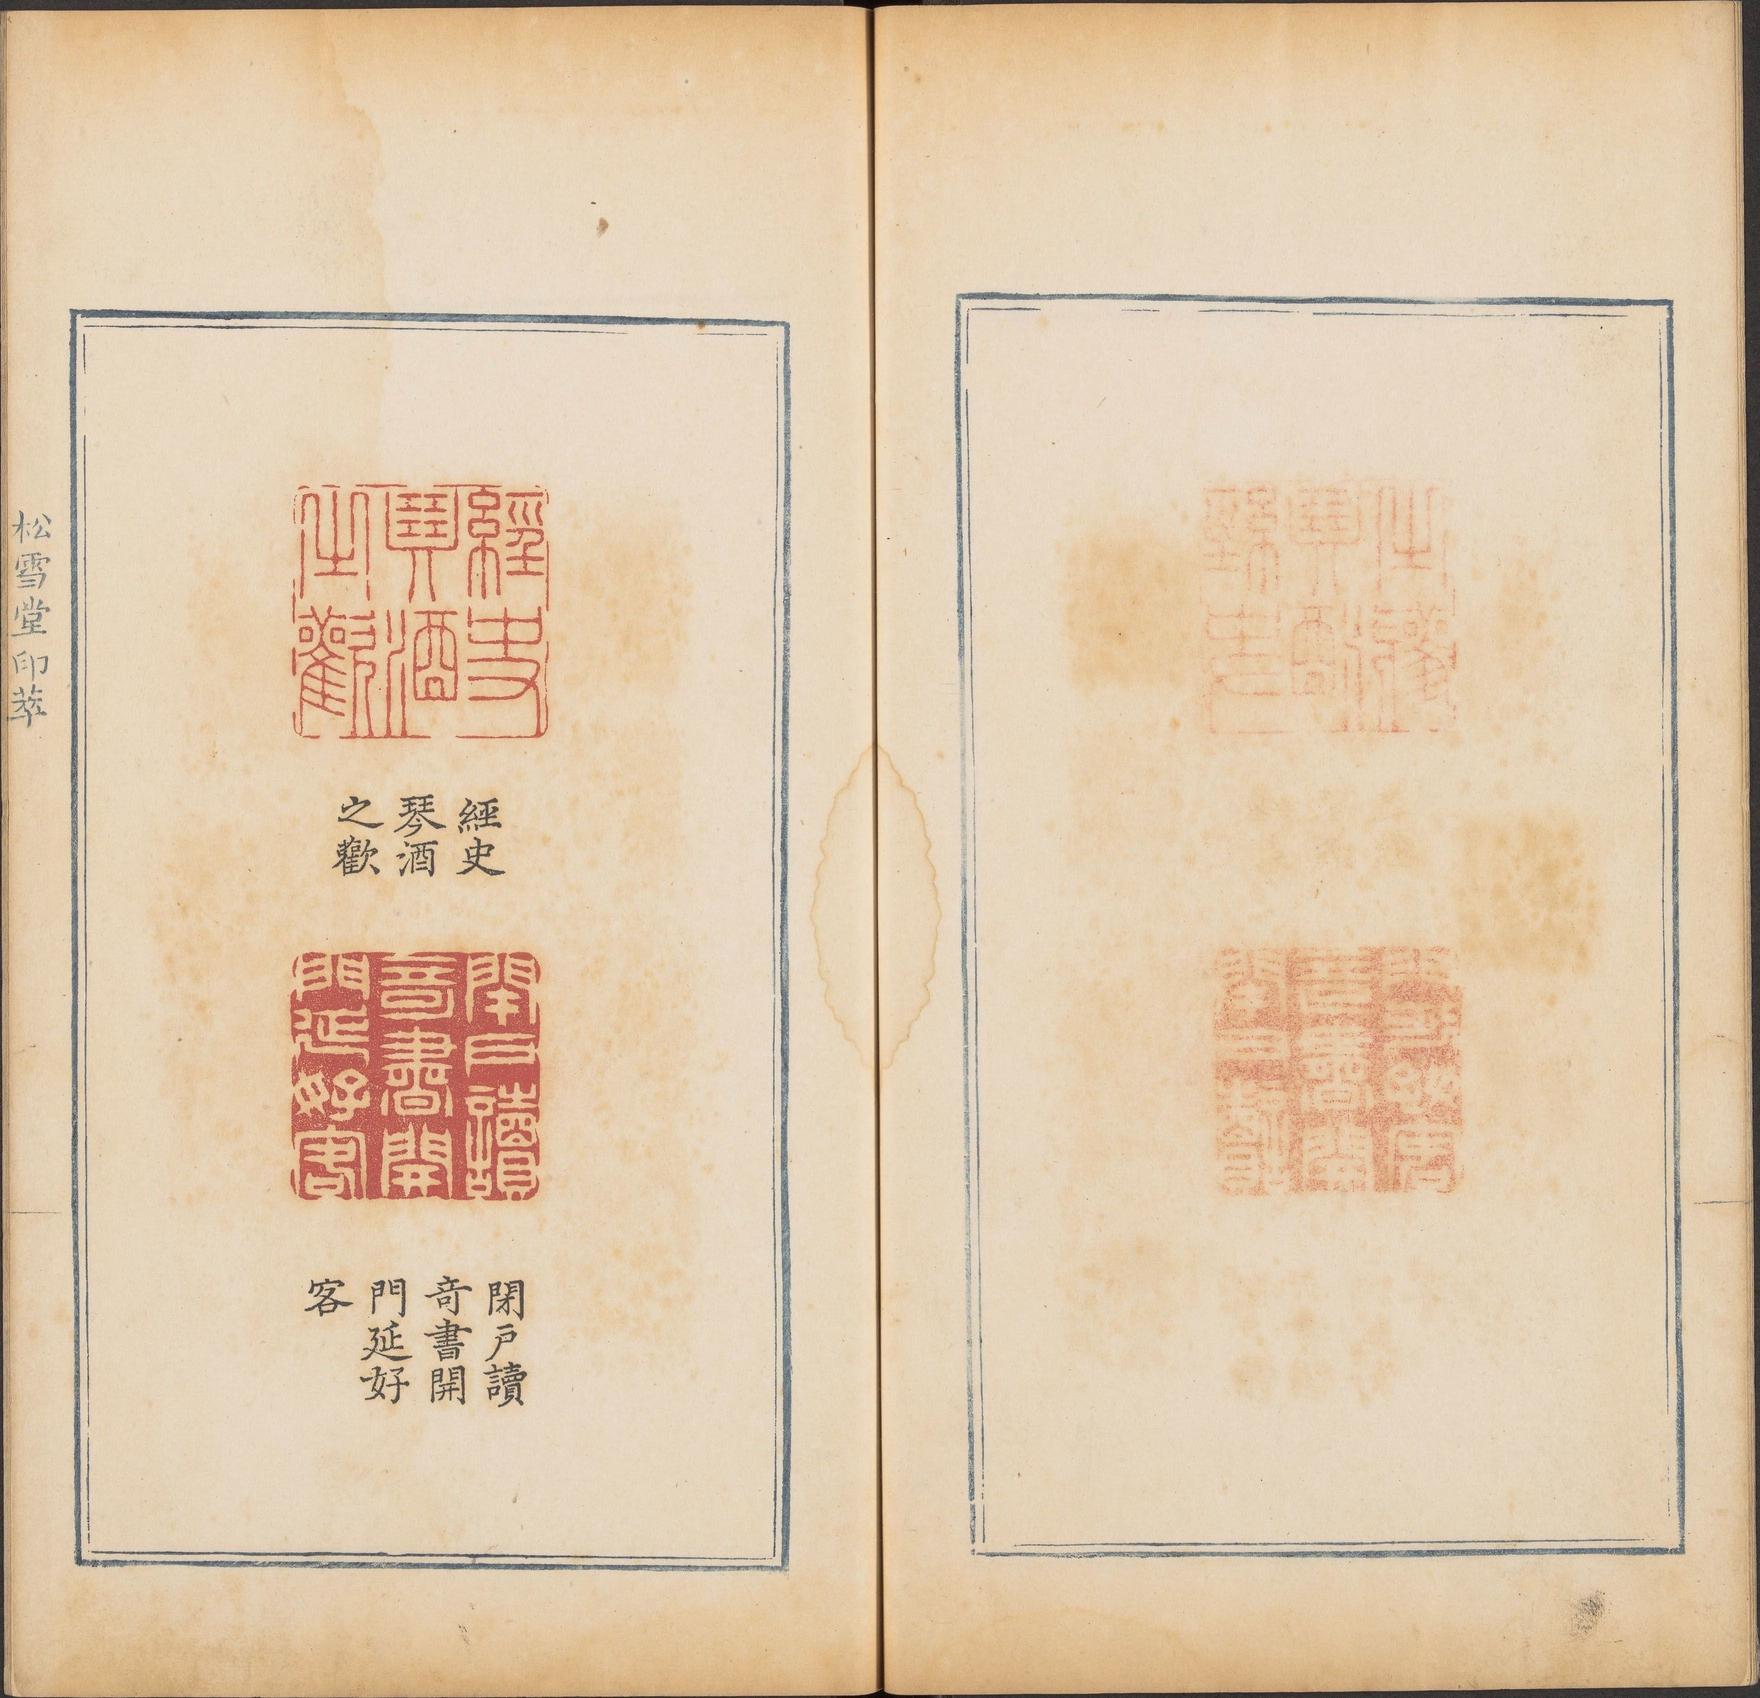 經史
琴酒
之歡
經史
琴酒
之歡
閉戶讀
奇書開
門延好
客
閉戶讀
奇書開
門延好
客
松雪堂印萃